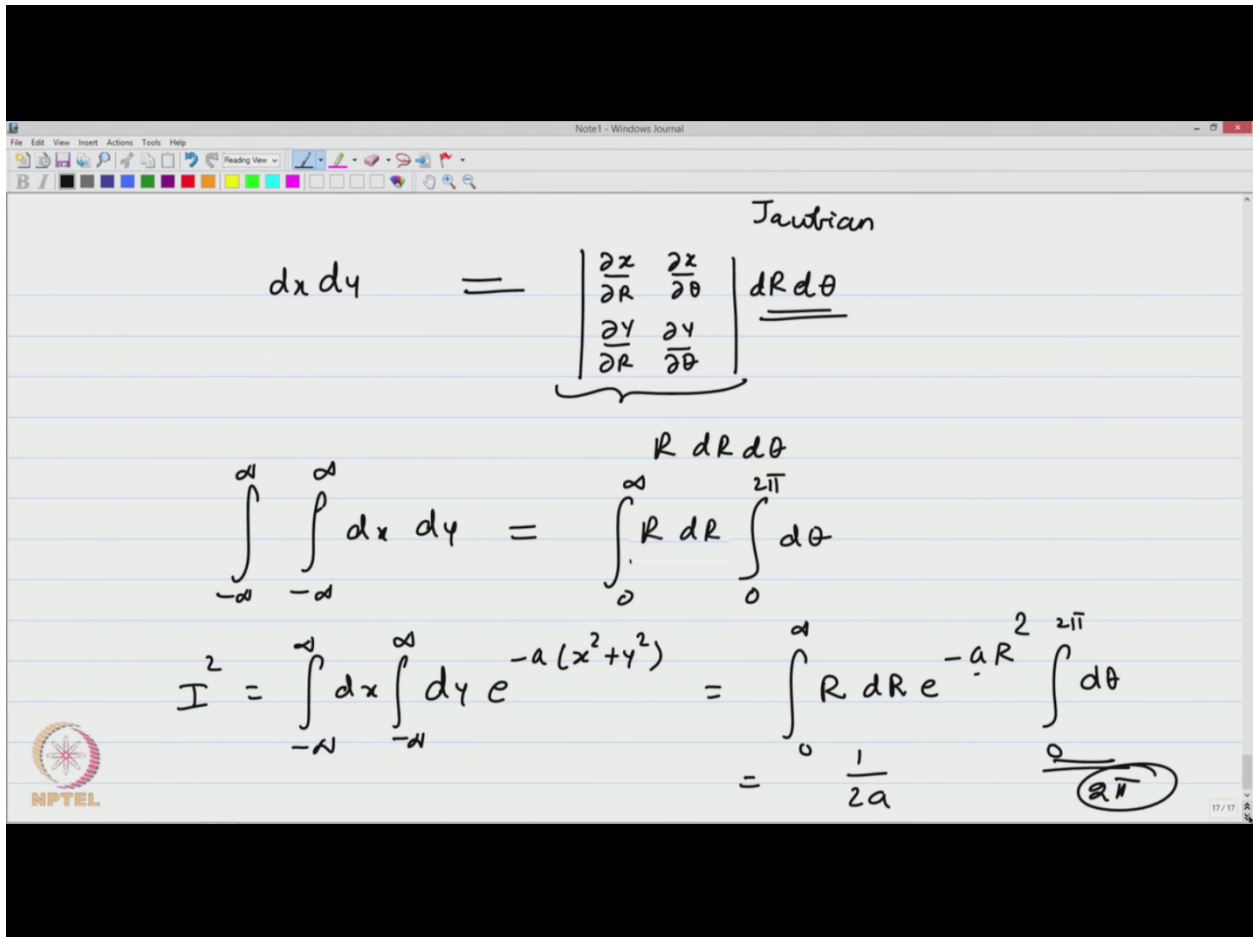 Note1 - Windows Journal
File Edit View Insert Actions Tools Help
Reading View
B I
Jacobian
dx dy = | ∂x/∂R ∂x/∂θ | dR dθ
| ∂y/∂R ∂y/∂θ |
R dR dθ
∫_{-∞}^{∞} ∫_{-∞}^{∞} dx dy = ∫_{0}^{∞} R dR ∫_{0}^{2π} dθ
I² = ∫_{-∞}^{∞} dx ∫_{-∞}^{∞} dy e^{-a(x²+y²)} = ∫_{0}^{∞} R dR e^{-aR²} ∫_{0}^{2π} dθ
= 1/2a 2π
NPTEL
17/17